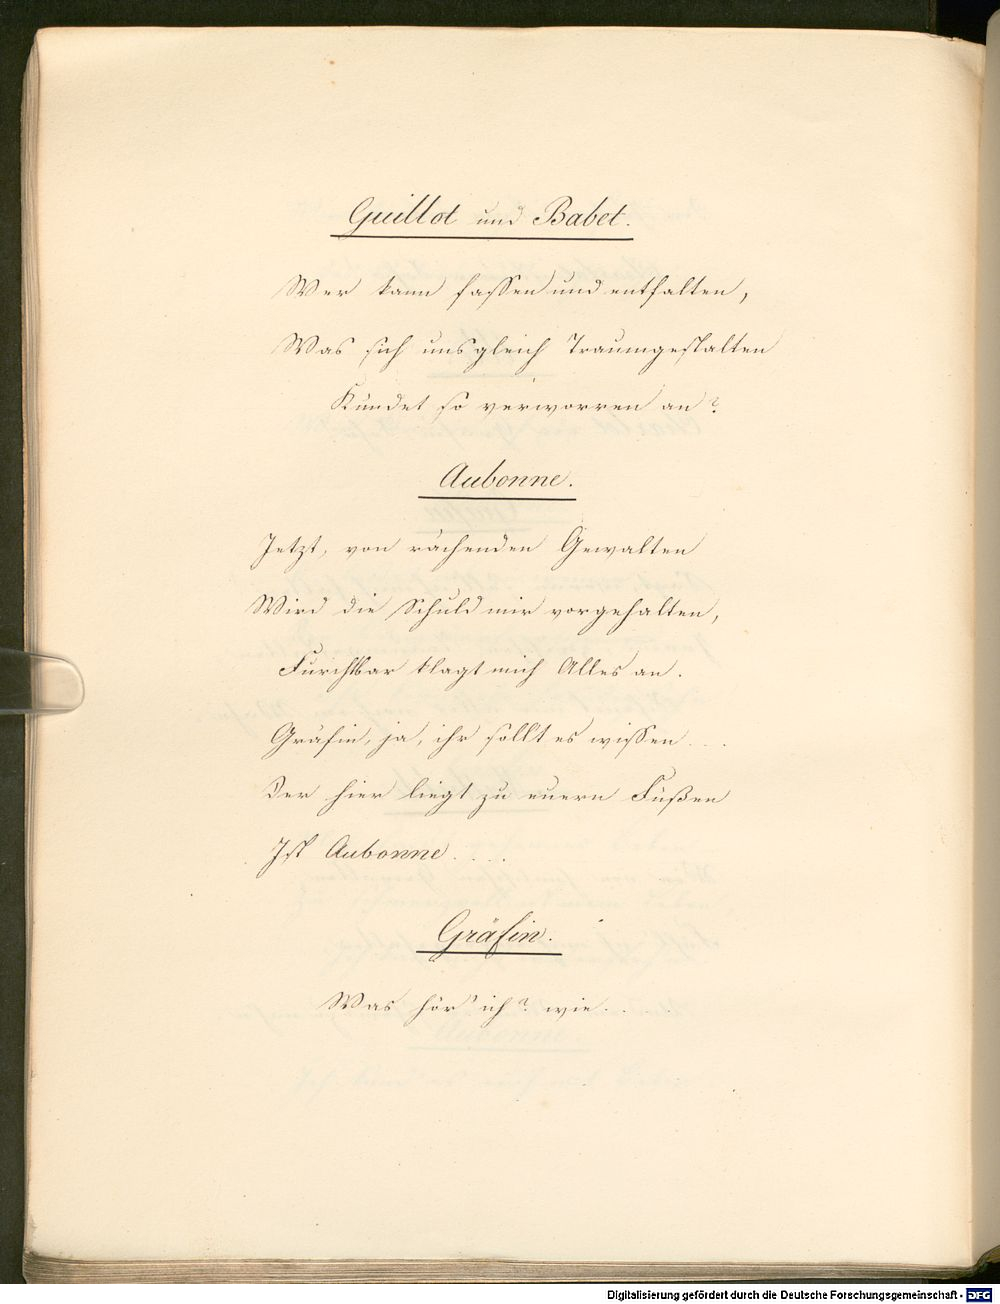 Guillot und Babet.
Wer kann fassen und entfalten,
Was sich uns gleich Traumgestalten
Kündet so verworren an?
Aubonne.
Jetzt, von rächenden Gewalten
Wird die Schuld mir vorgehalten,
Furchtbar klagt mich Alles an.
Gräfin, ja, ihr sollt es wissen...
Der hier liegt zu euern Füßen
Ist Aubonne....
Gräfin.
Was hör' ich? wie...
Digitalisierung gefördert durch die Deutsche Forschungsgemeinschaft - DFG